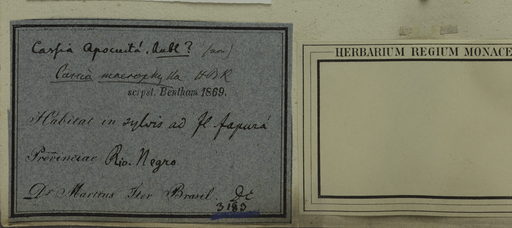 Cassia Apocuita. Aubl? (an)
Cassia macrophylla HBK
scrpst. Bentham 1869.
Habitat in sylvis ad fl. Japurá
Provinciae Rio-Negro
Dr Martius Iter Brasil Dc
3183
HERBARIUM REGIUM MONACE